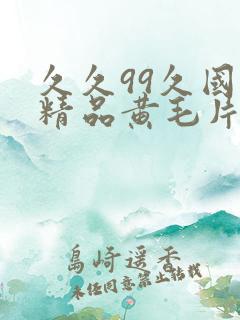 久久99久国
精品黄毛片
島崎遥香
未经同意禁止转载